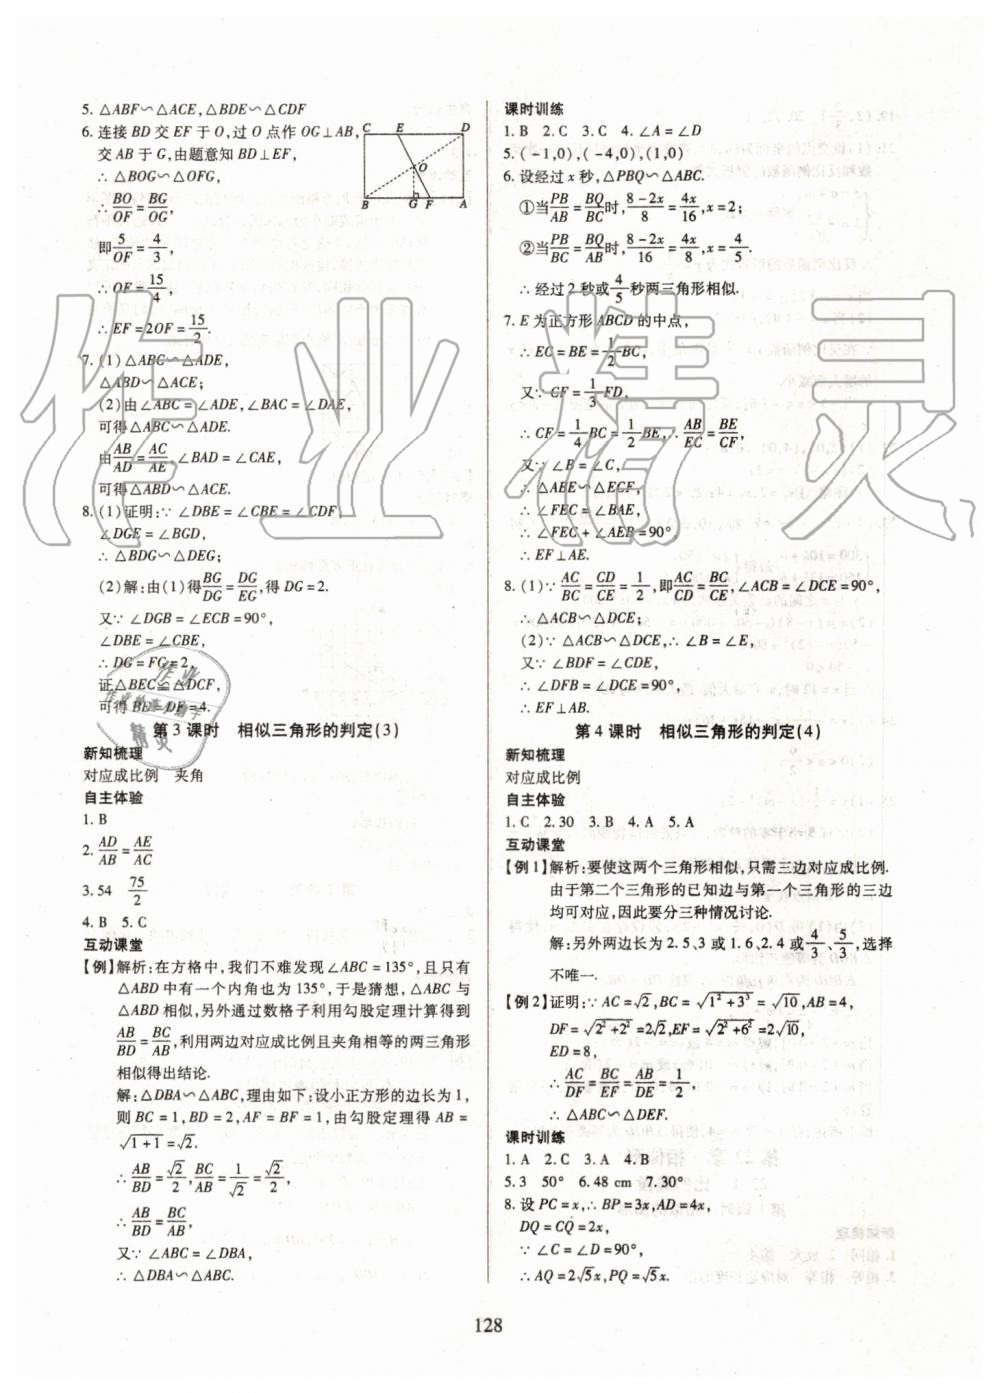 5. △ABF∽△ACE,△BDE∽△CDF
6. 连接 BD 交 EF 于 O,过 O 点作 OG⊥AB,
交 AB 于 G,由题意知 BD⊥EF,
∴ △BOG∽△OFG,
∴ BO/OF = BG/OG,
即 5/OF = 4/3,
∴ OF = 15/4,
∴ EF = 2OF = 15/2.
C E D
O
B G F A
7. (1)△ABC∽△ADE,
△ABD∽△ACE;
(2)由∠ABC = ∠ADE,∠BAC = ∠DAE,
可得△ABC∽△ADE.
由 AB/AD = AC/AE,∠BAD = ∠CAE,
可得△ABD∽△ACE.
8. (1)证明:∵ ∠DBE = ∠CBE = ∠CDF,
∠DGE = ∠BGD,
∴ △BDG∽△DEG;
(2)解:由(1)得 BG/DG = DG/EG,得 DG = 2.
又∵ ∠DGB = ∠ECB = 90°,
∠DBE = ∠CBE,
∴ DG = FG = 2,
证△BEC≌△DCF,
可得 BE = DF = 4.
第 3 课时 相似三角形的判定(3)
新知梳理
对应成比例 夹角
自主体验
1. B
2. AD/AB = AE/AC
3. 54 75/2
4. B 5. C
互动课堂
【例】解析:在方格中,我们不难发现∠ABC = 135°,且只有
△ABD 中有一个内角也为 135°,于是猜想,△ABC 与
△ABD 相似,另外通过数格子利用勾股定理计算得到
AB/BD = BC/AB,利用两边对应成比例且夹角相等的两三角形
相似得出结论.
解:△DBA∽△ABC,理由如下:设小正方形的边长为 1,
则 BC = 1,BD = 2,AF = BF = 1,由勾股定理得 AB =
√(1+1) = √2.
∴ AB/BD = √2/2, BC/AB = 1/√2 = √2/2,
∴ AB/BD = BC/AB,
又∵ ∠ABC = ∠DBA,
∴ △DBA∽△ABC.
课时训练
1. B 2. C 3. C 4. ∠A = ∠D
5. (-1,0),(-4,0),(1,0)
6. 设经过 x 秒,△PBQ∽△ABC.
①当 PB/AB = BQ/BC 时, (8-2x)/8 = 4x/16, x = 2;
②当 PB/BC = BQ/AB 时, (8-2x)/16 = 4x/8, x = 4/5.
∴ 经过 2 秒或 4/5 秒两三角形相似.
7. E 为正方形 ABCD 的中点,
∴ EC = BE = 1/2 BC,
又∵ CF = 1/3 FD,
∴ CF = 1/4 BC = 1/2 BE, ∴ AB/EC = BE/CF,
又∵ ∠B = ∠C,
∴ △ABE∽△ECF,
∴ ∠FEC = ∠BAE,
∴ ∠FEC + ∠AEB = 90°
∴ EF⊥AE.
8. (1)∵ AC/BC = CD/CE = 1/2, 即 AC/CD = BC/CE, ∠ACB = ∠DCE = 90°,
∴ △ACB∽△DCE;
(2)∵ △ACB∽△DCE,∴ ∠B = ∠E,
又∵ ∠BDF = ∠CDE,
∴ ∠DFB = ∠DCE = 90°,
∴ EF⊥AB.
第 4 课时 相似三角形的判定(4)
新知梳理
对应成比例
自主体验
1. C 2. 30 3. B 4. A 5. A
互动课堂
【例 1】解析:要使这两个三角形相似,只需三边对应成比例.
由于第二个三角形的已知边与第一个三角形的三边
均可对应,因此要分三种情况讨论.
解:另外两边长为 2.5、3 或 1.6、2.4 或 4/3、5/3,选择
不唯一.
【例 2】证明:∵ AC = √2, BC = √(1²+3³) = √10, AB = 4,
DF = √(2²+2²) = 2√2, EF = √(2²+6²) = 2√10,
ED = 8,
∴ AC/DF = BC/EF = AB/DE = 1/2,
∴ △ABC∽△DEF.
课时训练
1. A 2. C 3. A 4. B
5. 3 50° 6. 48 cm 7. 30°
8. 设 PC = x,∴ BP = 3x,AD = 4x,
DQ = CQ = 2x,
∵ ∠C = ∠D = 90°,
∴ AQ = 2√5x, PQ = √5x.
128
作业精灵